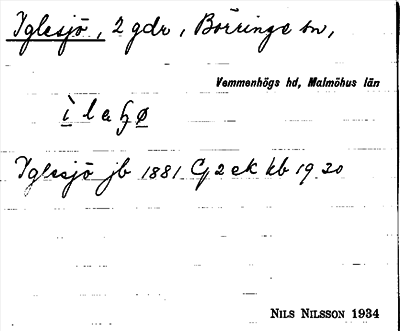 Iglesjö, 2 gdr, Börringe sn,
Vemmenhögs hd, Malmöhus län
Iglesjö jb 1881 GJ 2 ek kb 19 20
NILS NILSSON 1934